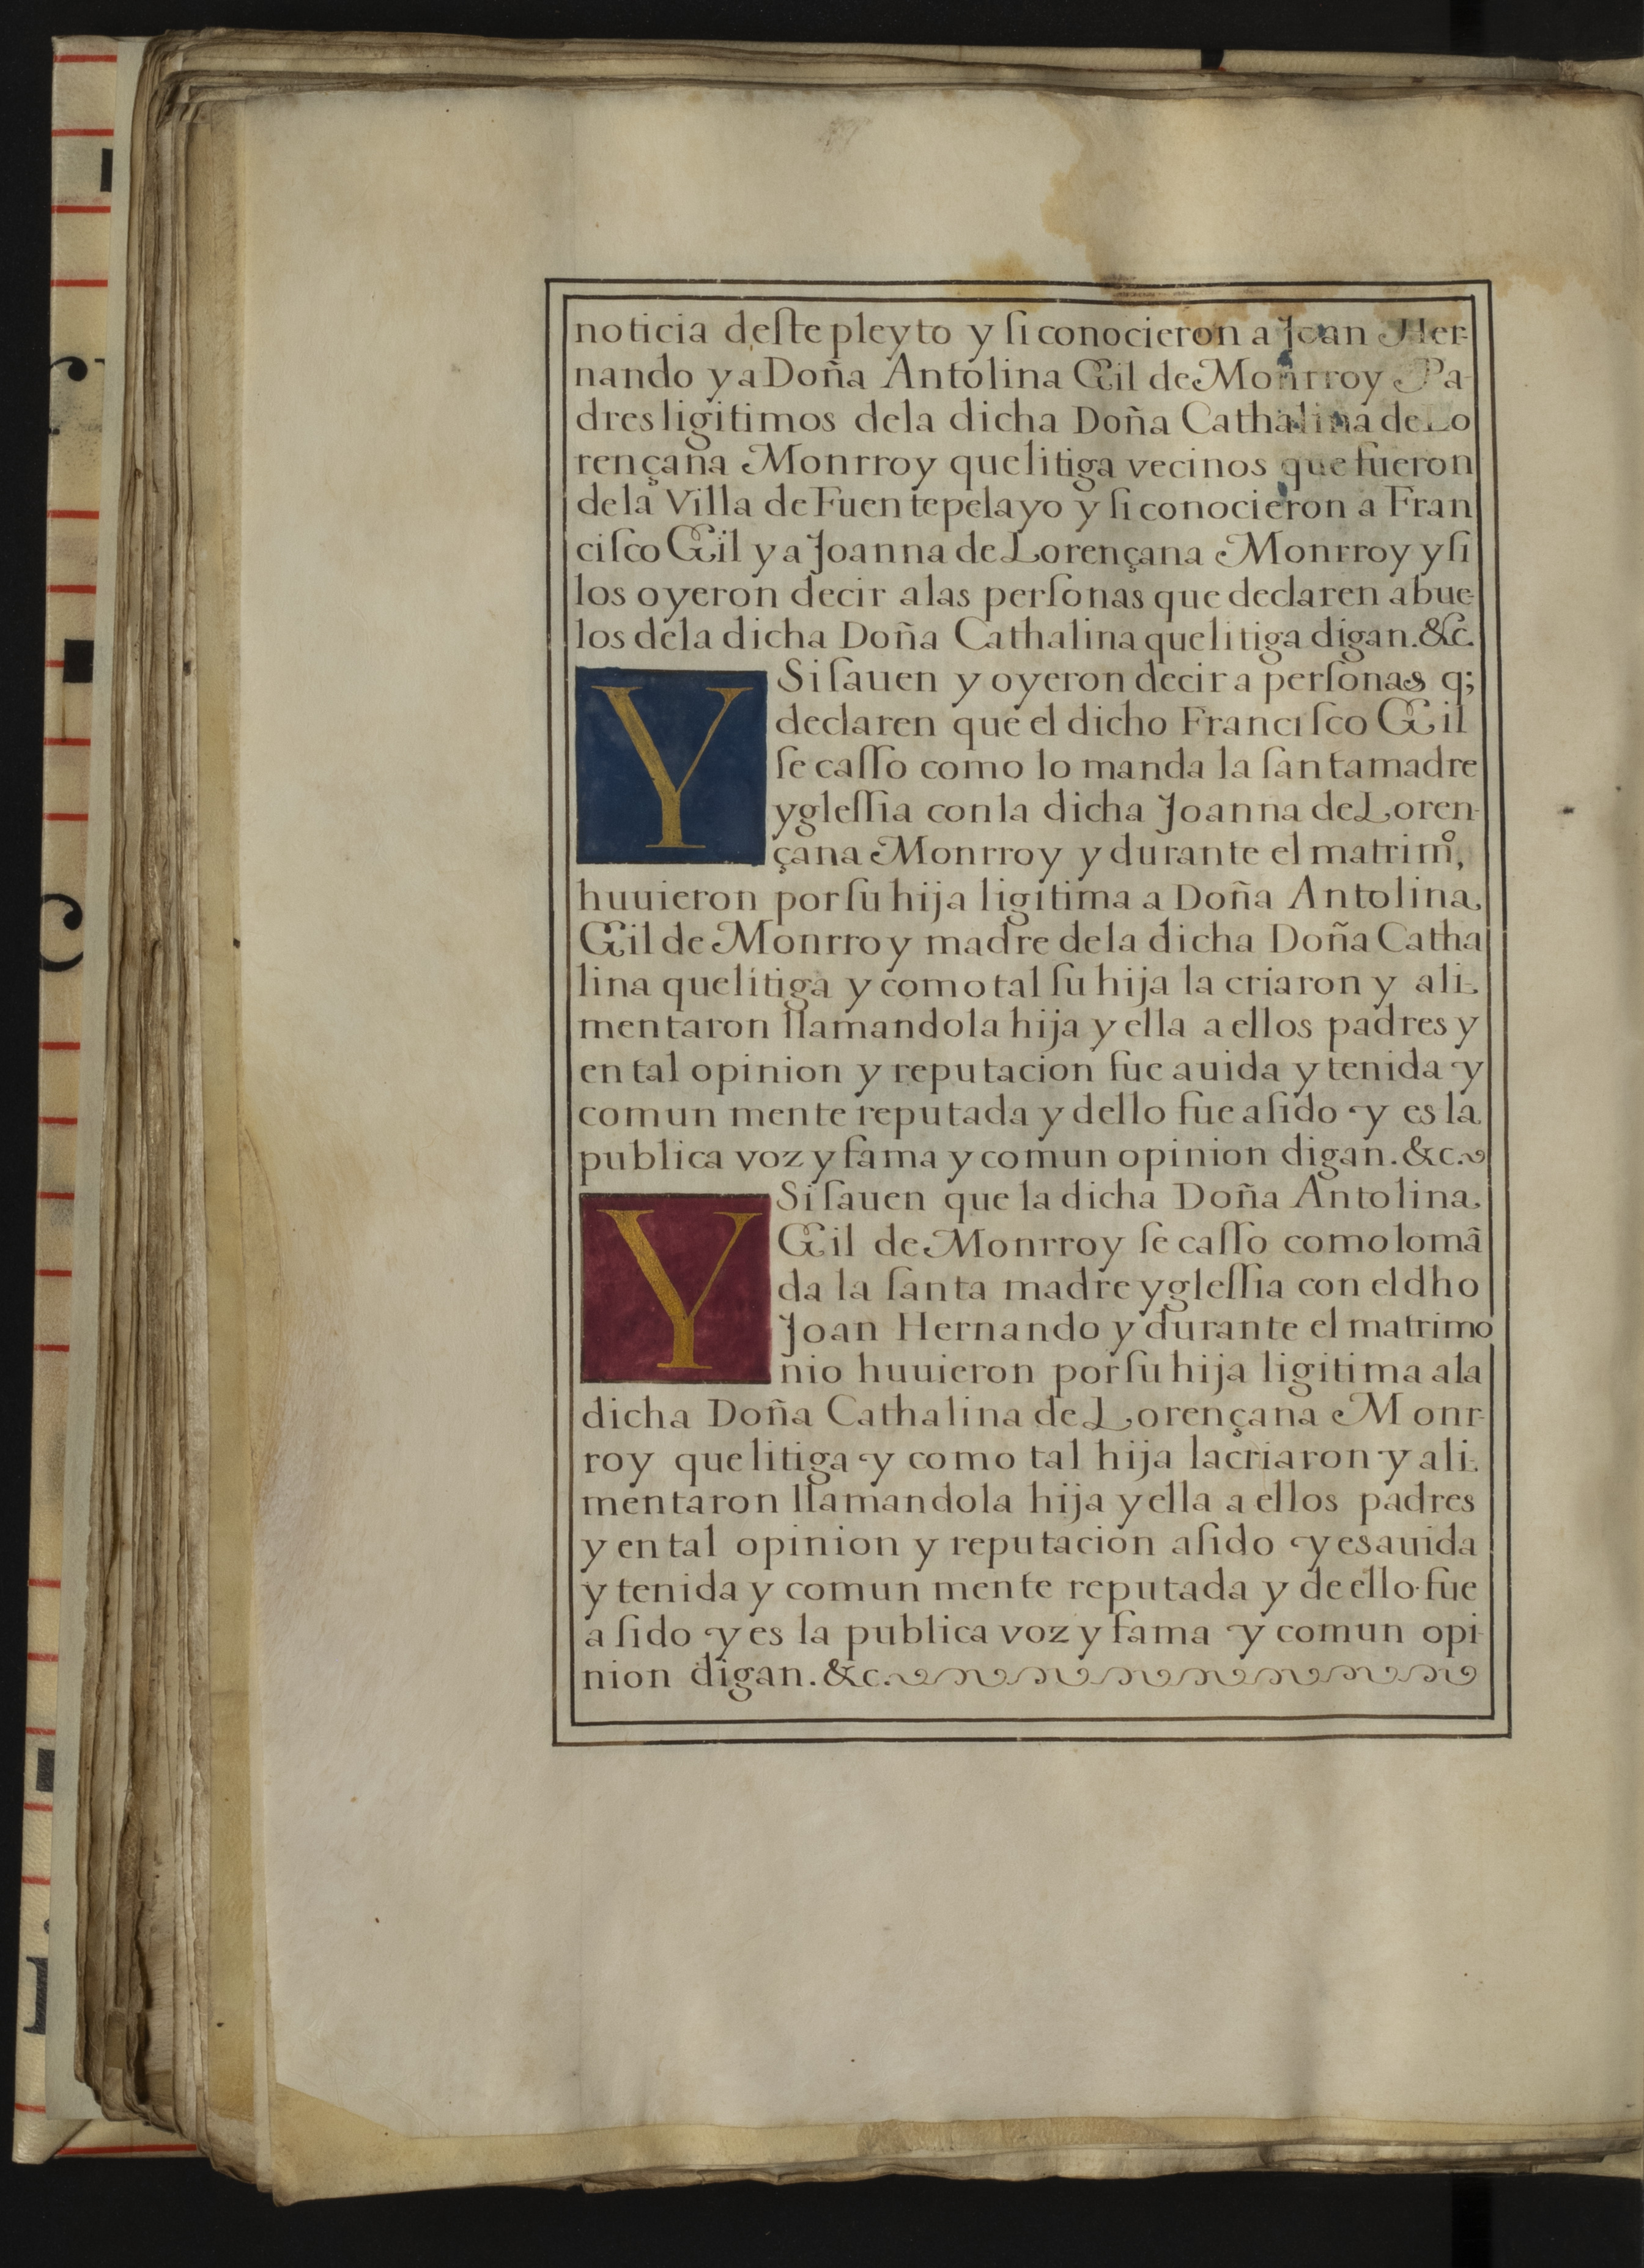 noticia deſte pleyto y ſi conocieron a Joan Her-
nando y a Doña Antolina Gil de Monrroy Pa-
dres ligitimos dela dicha Doña Cathalina de Lo
rençana Monrroy que litiga vecinos que fueron
dela Villa de Fuentepelayo y ſi conocieron a Fran
ciſco Gil y a Joanna de Lorençana Monrroy y ſi
los oyeron decir alas perſonas que declaren abue-
los dela dicha Doña Cathalina que litiga digan. &c.
Y Si ſauen y oyeron decir a perſonas q;
declaren que el dicho Franciſco Gil
ſe caſſo como lo manda la ſanta madre
ygleſſia con la dicha Joanna de Loren-
çana Monrroy y durante el matrimº,
huuieron por ſu hija ligitima a Doña Antolina
Gil de Monrroy madre dela dicha Doña Catha
lina que litiga y como tal ſu hija la criaron y ali-
mentaron llamandola hija y ella a ellos padres y
en tal opinion y reputacion fue auida y tenida y
comun mente reputada y dello fue a ſido y es la
publica voz y fama y comun opinion digan. &c.
Y Si ſauen que la dicha Doña Antolina
Gil de Monrroy ſe caſſo como lo mã
da la ſanta madre ygleſſia con el dho
Joan Hernando y durante el matrimo
nio huuieron por ſu hija ligitima ala
dicha Doña Cathalina de Lorençana Monr-
roy que litiga y como tal hija la criaron y ali-
mentaron llamandola hija y ella a ellos padres
y en tal opinion y reputacion a ſido y es auida
y tenida y comun mente reputada y de ello fue
a ſido y es la publica voz y fama y comun opi-
nion digan. &c.